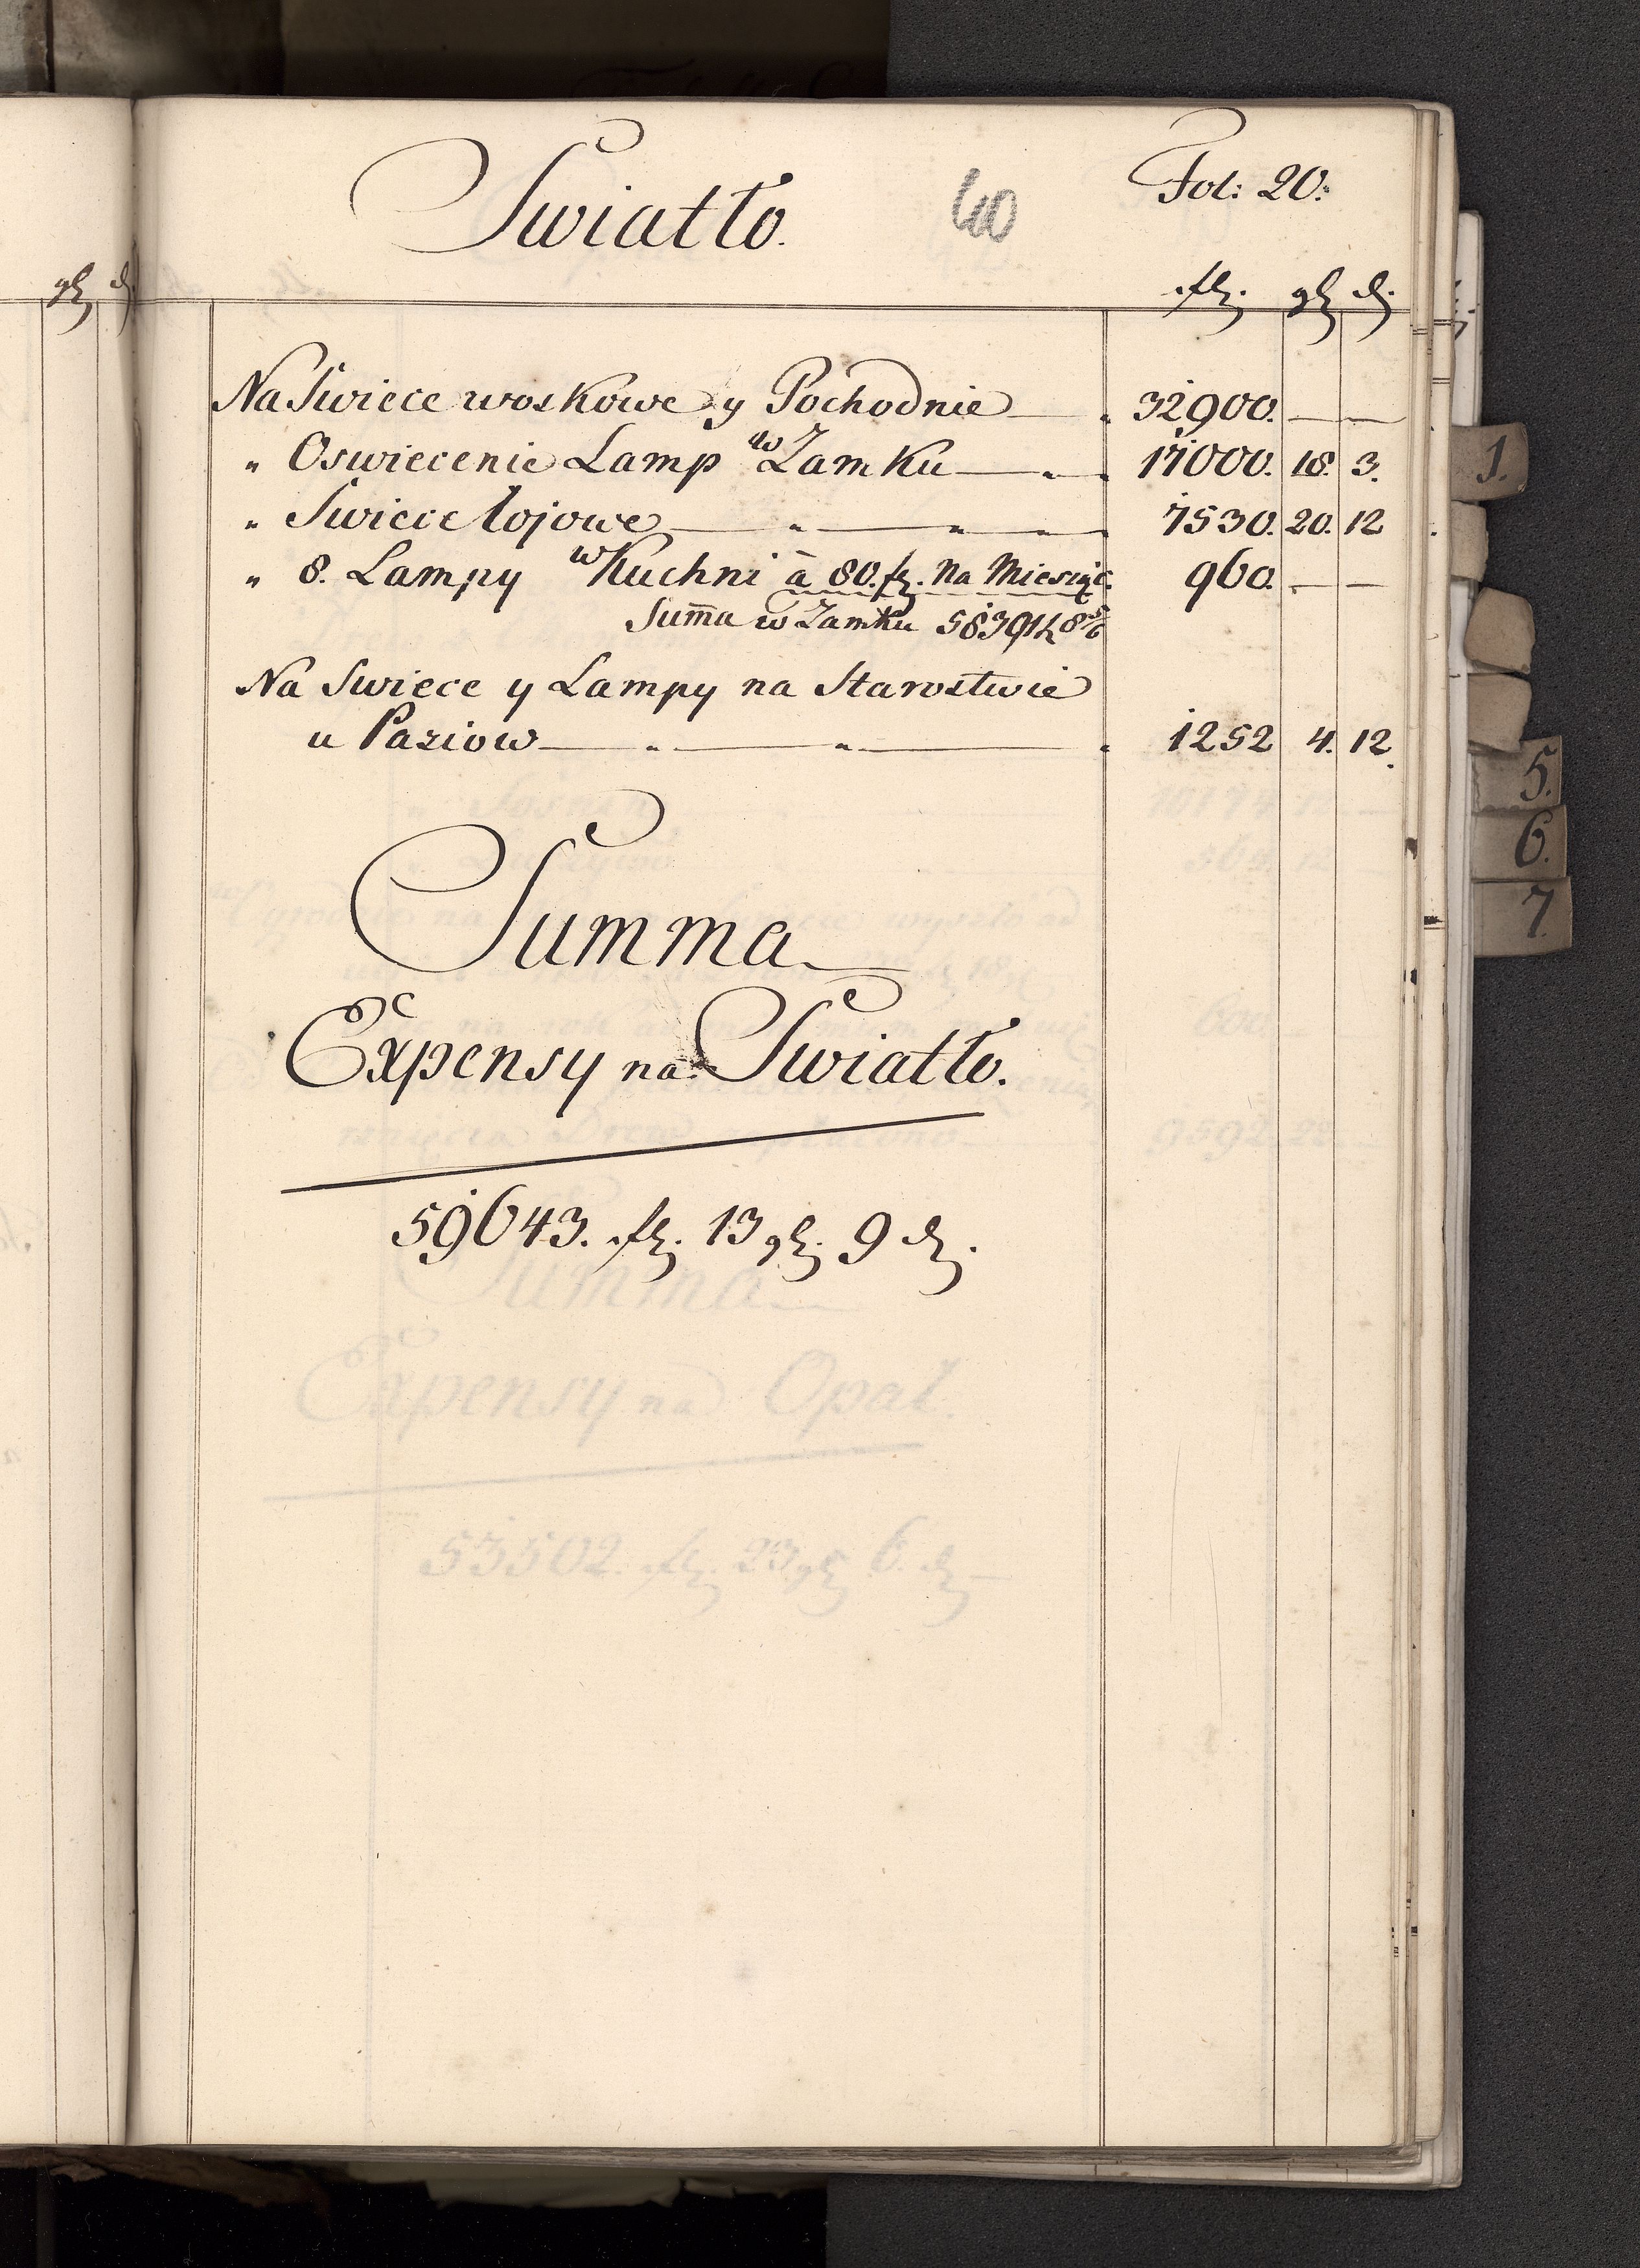 Swiatło.
60
Fol: 20.
fl. gl d.
Na Swiece woskowe y Pochodnie 32900. — —
" Oswiecenie Lamp w Zamku 17000. 18. 3.
" Swiece łojowe 7530. 20. 12
" 8. Lampy w Kuchni à 80. fl. na Miesiąc. 960. — —
Sum̄a w Zamku 58391
Na Swiece y Lampy na Starostwie
u Paziow 1252 4. 12.
Summa
Expensy na Swiatło.
59643. fl. 13 gl. 9 d.
1.
5.
6.
7.